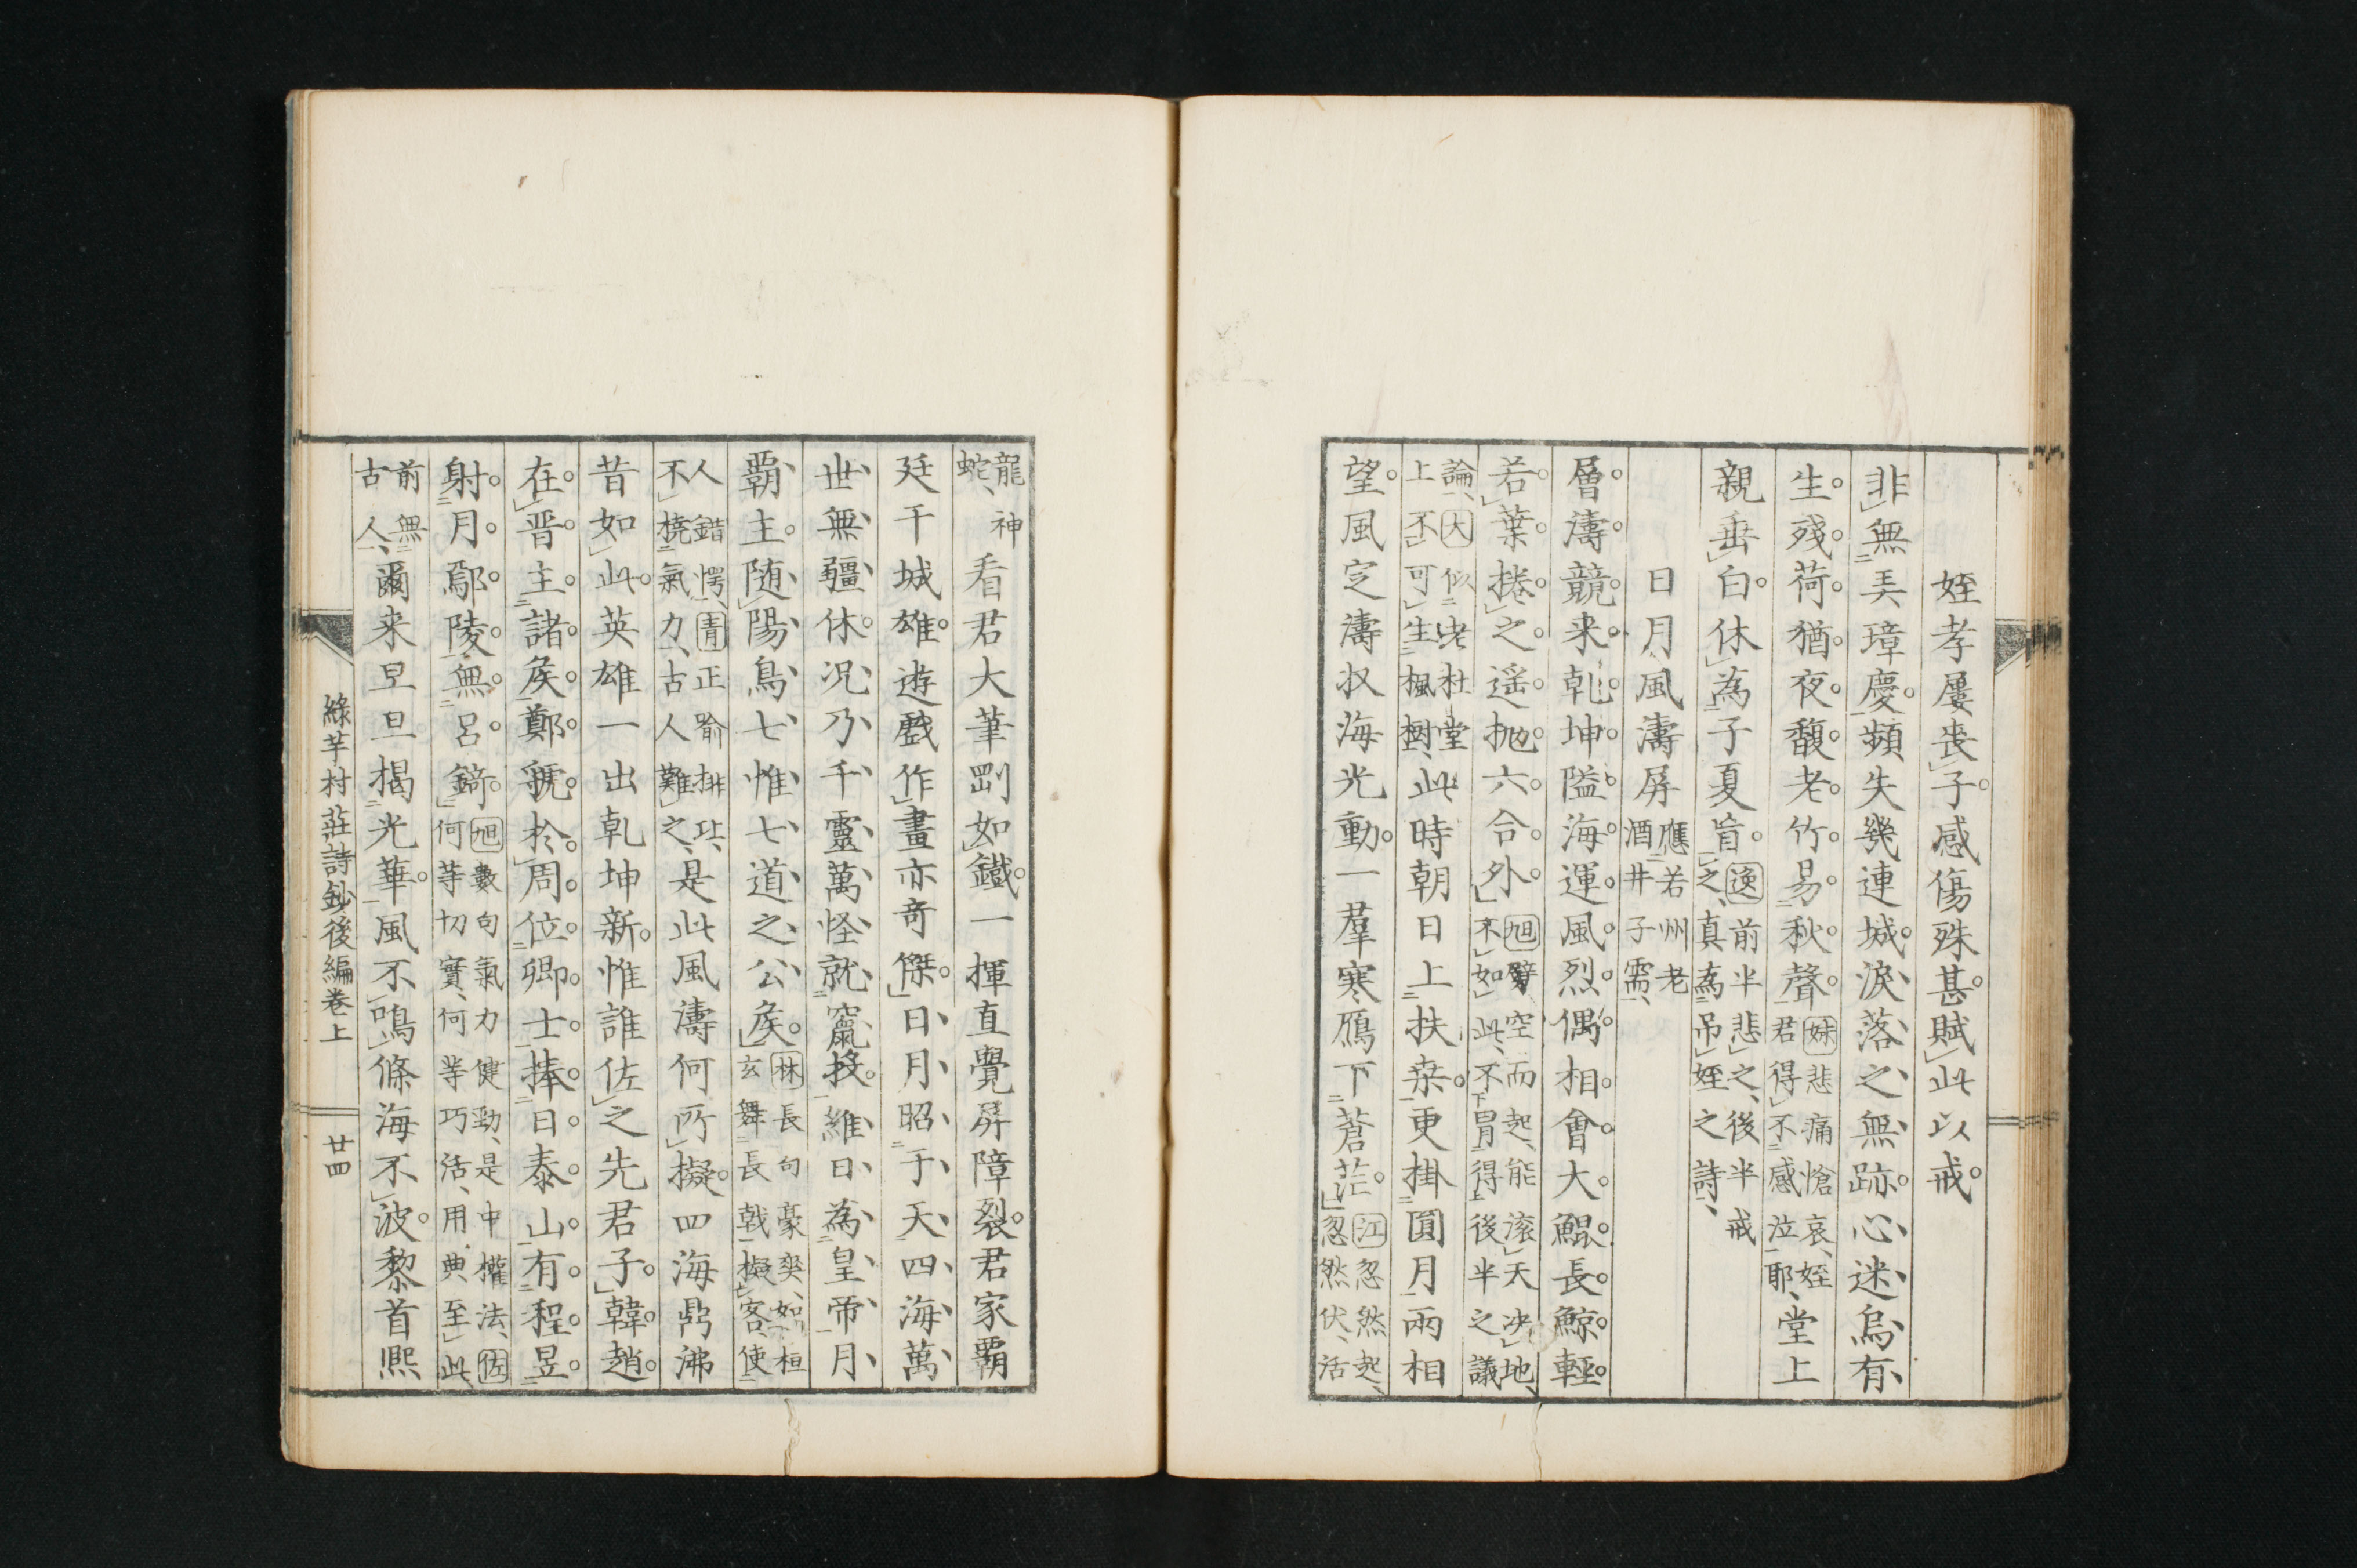 姪孝屢喪子感傷殊甚賦此以戒
非無弄璋慶頻失幾連城淚落之無跡心迷烏有
生殘荷猶夜馥老竹易秋聲
妹悲痛愴哀姪
君得不感泣耶
堂上
親垂白休為子夏盲
逸前半悲之後半戒
之真為吊姪之詩
日月風濤屏
應若州老
酒井子需
層濤競来乾坤隘海運風烈偶相會大鯤長鯨輕
若葉捲之遥抛六合外
旭劈空而起能滚天决地
不如此不冐得後半之議
論大似老杜堂
上不可生楓樹
此時朝日上扶桒更掛圓月兩相
望風定濤収海光動一羣寒鴈下蒼茫
江忽然起
忽然伏活
龍神
蛇
看君大筆剛如鐵一揮直覺屏障裂君家覇
廷干城雄遊戲作畫亦竒傑日月昭于天四海萬
世無疆休况乃千靈萬怪就竄投維日為皇帝月
覇主随陽鳥七惟七道之公矦
林長句豪爽如桓
玄舞長戟擬客使
人錯愕青正喻排比
不橈氣力古人難之
是此風濤何所擬四海鼎沸
昔如此英雄一出乾坤新惟誰佐之先君子韓趙
在晋主諸矦鄭虢於周位卿士捧日泰山有程昱
射月鄢陵無呂錡
旭數句氣力健勁是中權法佐
何等切實何等巧活用典至此
前無
古人
爾来旦旦揭光華風不鳴條海不波黎首熙
綠芋村莊詩鈔後編卷上
廿四